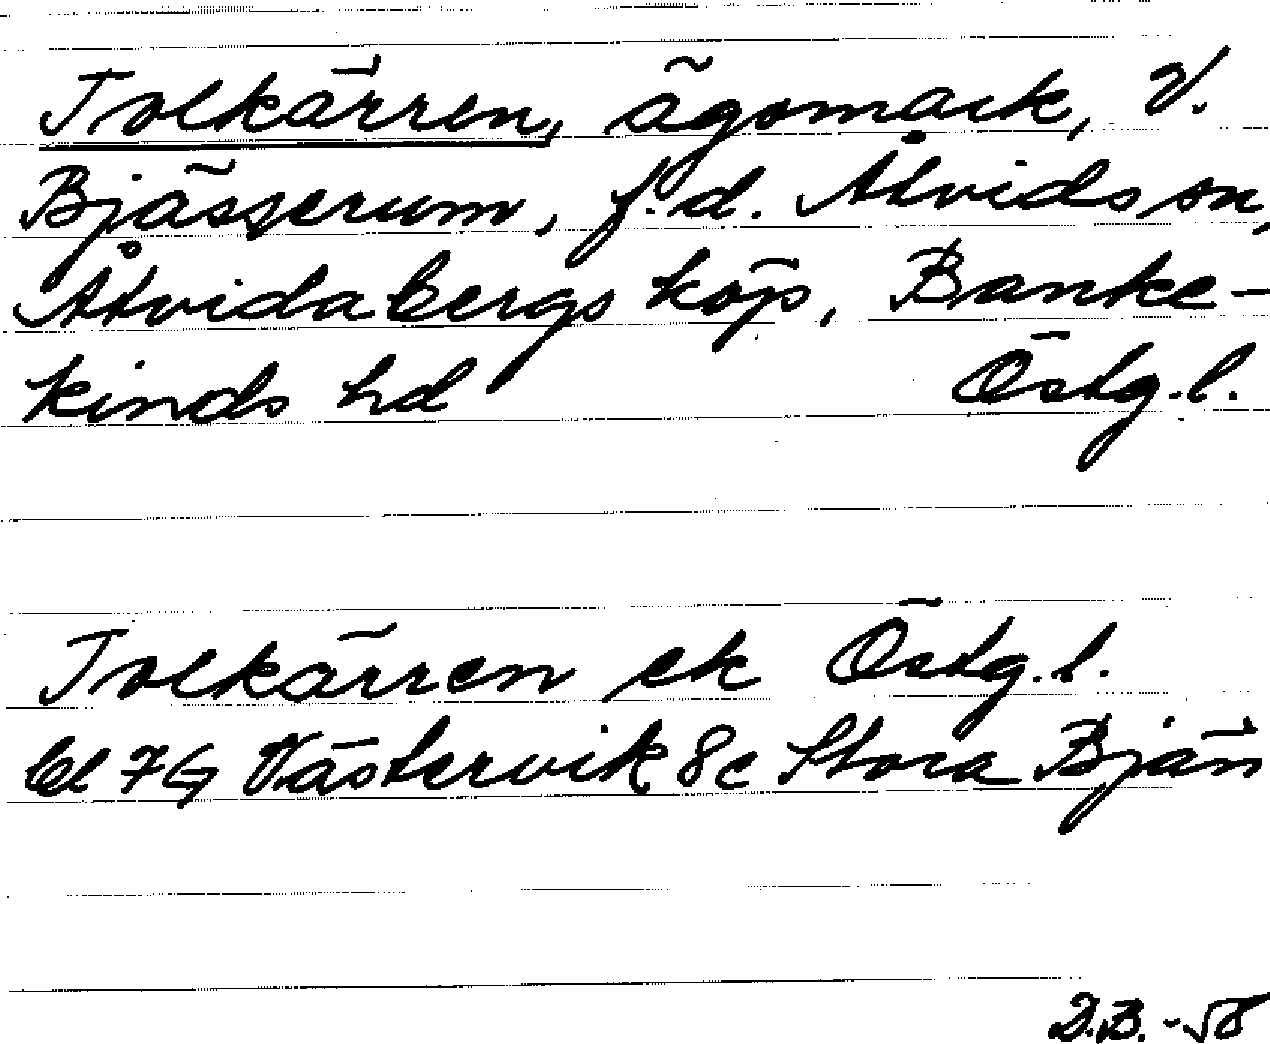 Tolkärren, ägomark, V.
Bjässerum, f.d. Åtvids sn,
Åtvidabergs köp, Banke-
kinds hd Östg.l.
Tolkärren ek Östg.l.
bl 7G Västervik 8c Stora Bjän
D.B. -58